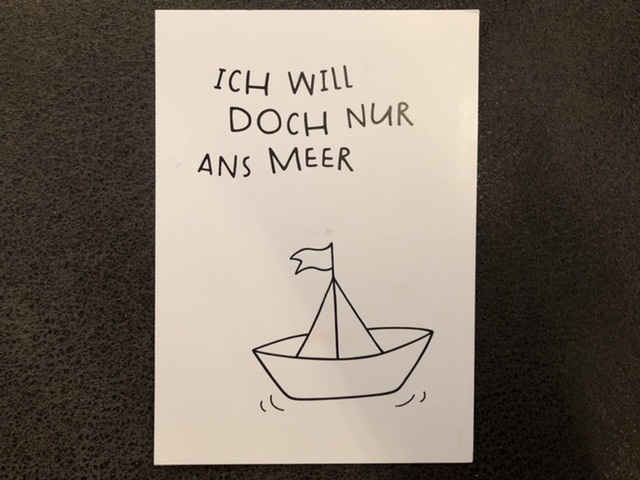 ICH WILL
DOCH NUR
ANS MEER